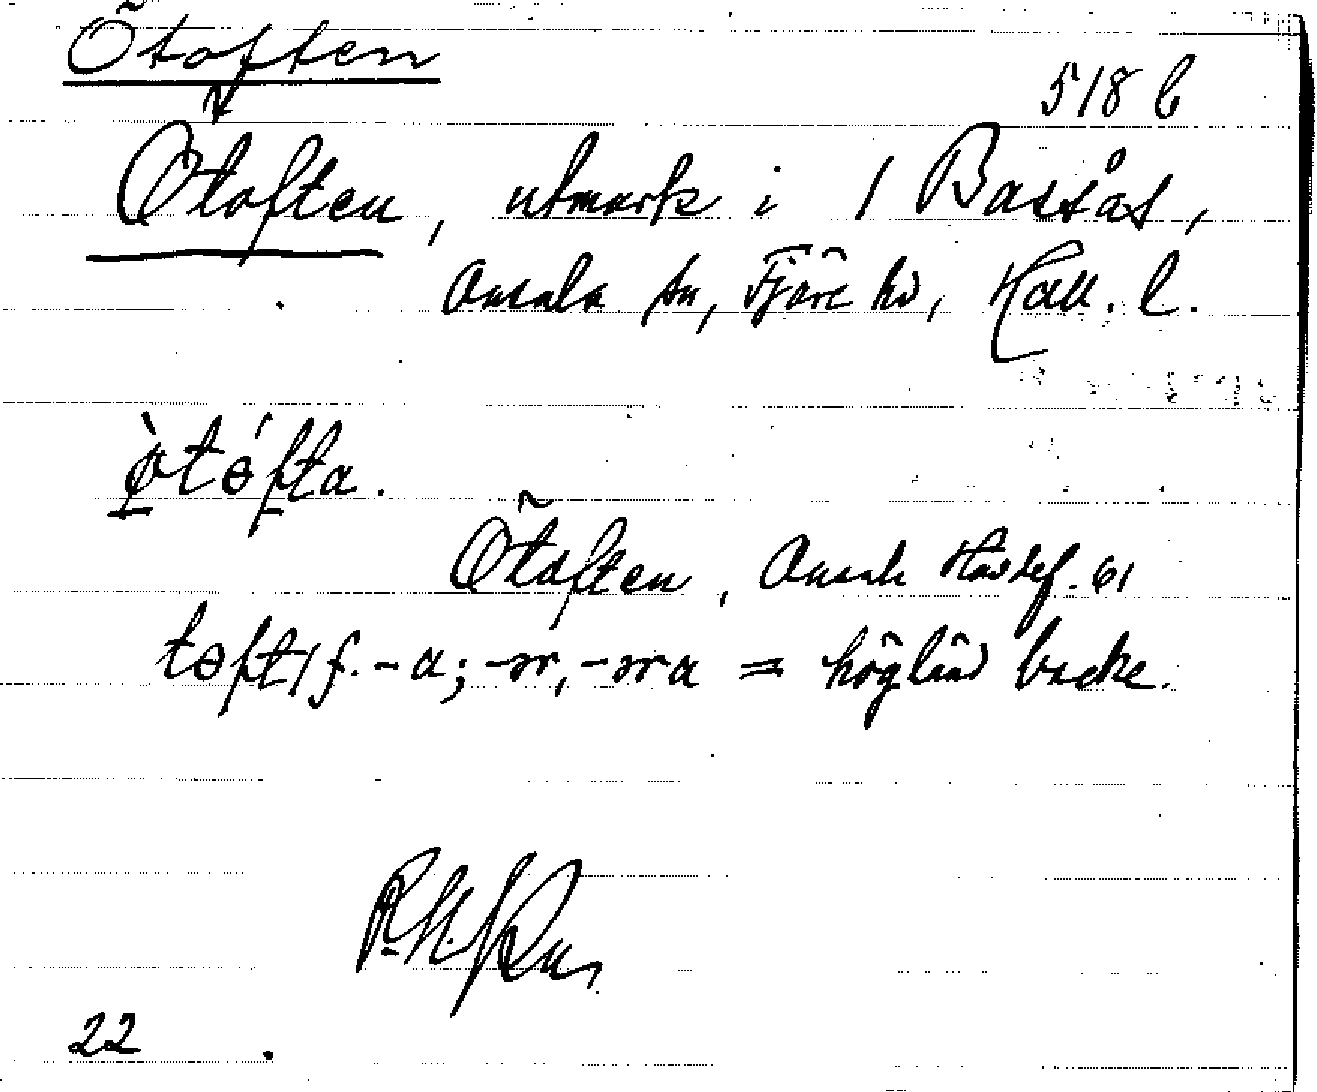 Õtoften
518 b
Õtoften, utmark i 1 Bassås,
Onsala sn, Fjäre hd, Hall. l.
ø̀tɵ́fta.
Õtoften, Onsala
tɵft, f. -a; -ər, -əra = högländ backe.
22